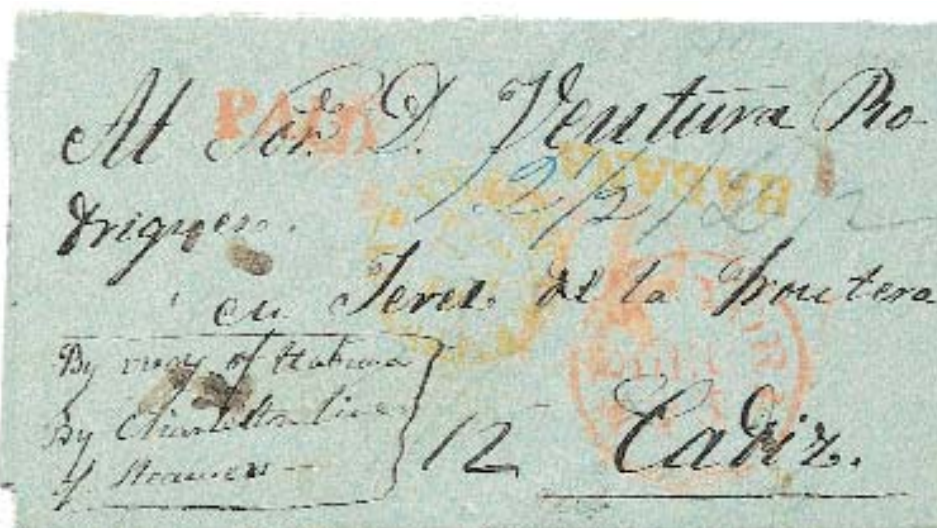 PAID
Al Sor. D. Ventura Ro-
driguez.
HABANA
en Jerez de la Frontera
By way of Habana
By Charleston line
of steamers
12
Cadiz.